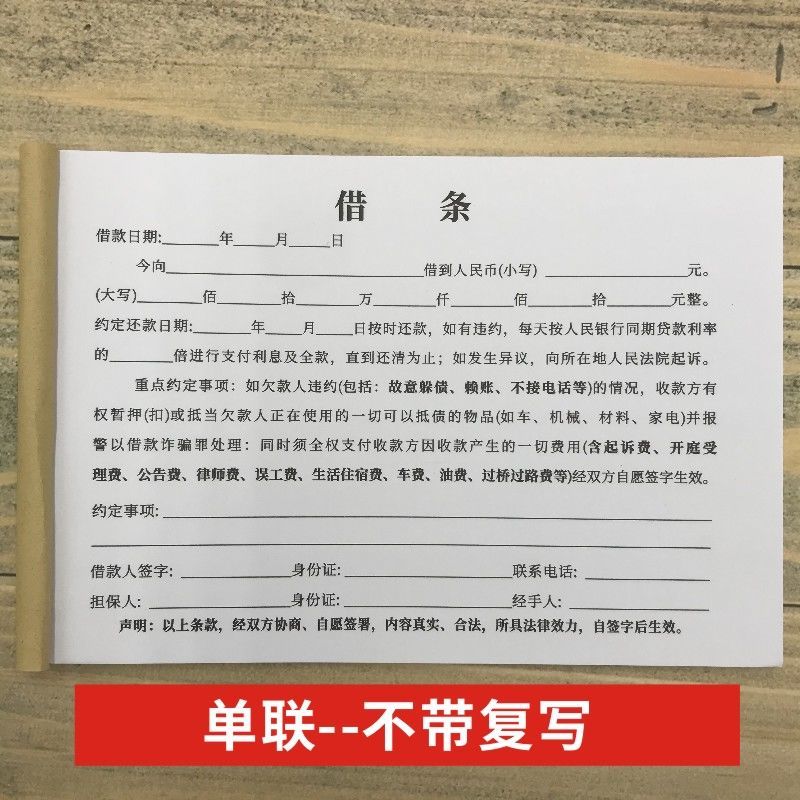 借 条
借款日期:_______年_____月_____日
今向________________________________借到人民币(小写) __________________元。
(大写)________佰________拾________万________仟________佰________拾________元整。
约定还款日期:_______年_____月_____日按时还款，如有违约，每天按人民银行同期贷款利率
的________倍进行支付利息及全款，直到还清为止；如发生异议，向所在地人民法院起诉。
重点约定事项：如欠款人违约(包括：故意躲债、赖账、不接电话等)的情况，收款方有
权暂押(扣)或抵当欠款人正在使用的一切可以抵债的物品(如车、机械、材料、家电)并报
警以借款诈骗罪处理：同时须全权支付收款方因收款产生的一切费用(含起诉费、开庭受
理费、公告费、律师费、误工费、生活住宿费、车费、油费、过桥过路费等)经双方自愿签字生效。
约定事项:
借款人签字: ______________身份证: _____________________联系电话: ________________
担保人: _________________身份证: _____________________经手人: __________________
声明：以上条款，经双方协商、自愿签署，内容真实、合法，所具法律效力，自签字后生效。
单联--不带复写